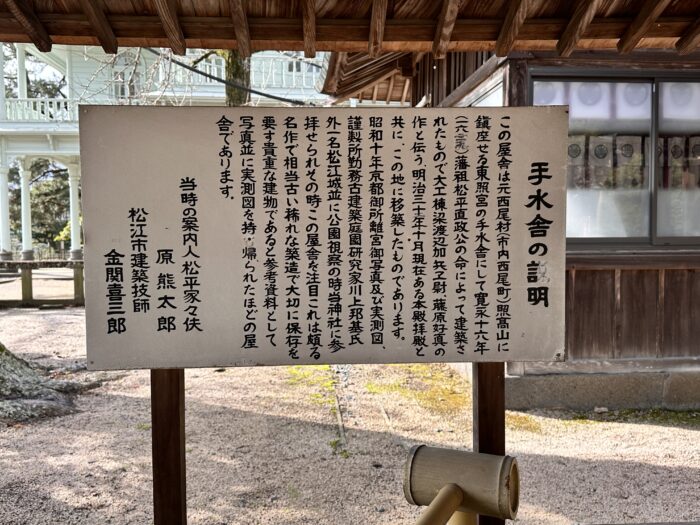 手水舎の説明
この屋舎は元西尾村(市内西尾町)照高山に
鎮座せる東照宮の手水舎にして寛永十六年
(一六三九)藩祖松平直政公の命によって建築さ
れたもので大工棟梁渡辺加兵ヱ尉 藤原好真の
作と伝う、明治三十一年十月現在ある本殿拝殿と
共に、この地に移築したものであります。
昭和十年京都御所離宮御写真及び実測図、
謹製所勤務古建築庭園研究家川上邦基氏
外一名松江城並に公園視察の時当神社に参
拝せられその時この屋舎を注目これは頗る
名作で相当古い稀れな築造で大切に保存を
要す貴重な建物であると参考資料として、
写真並に実測図を持ち帰られたほどの屋
舎であります。
当時の案内人松平家々伕
原 熊太郎
松江市建築技師
金関喜三郎